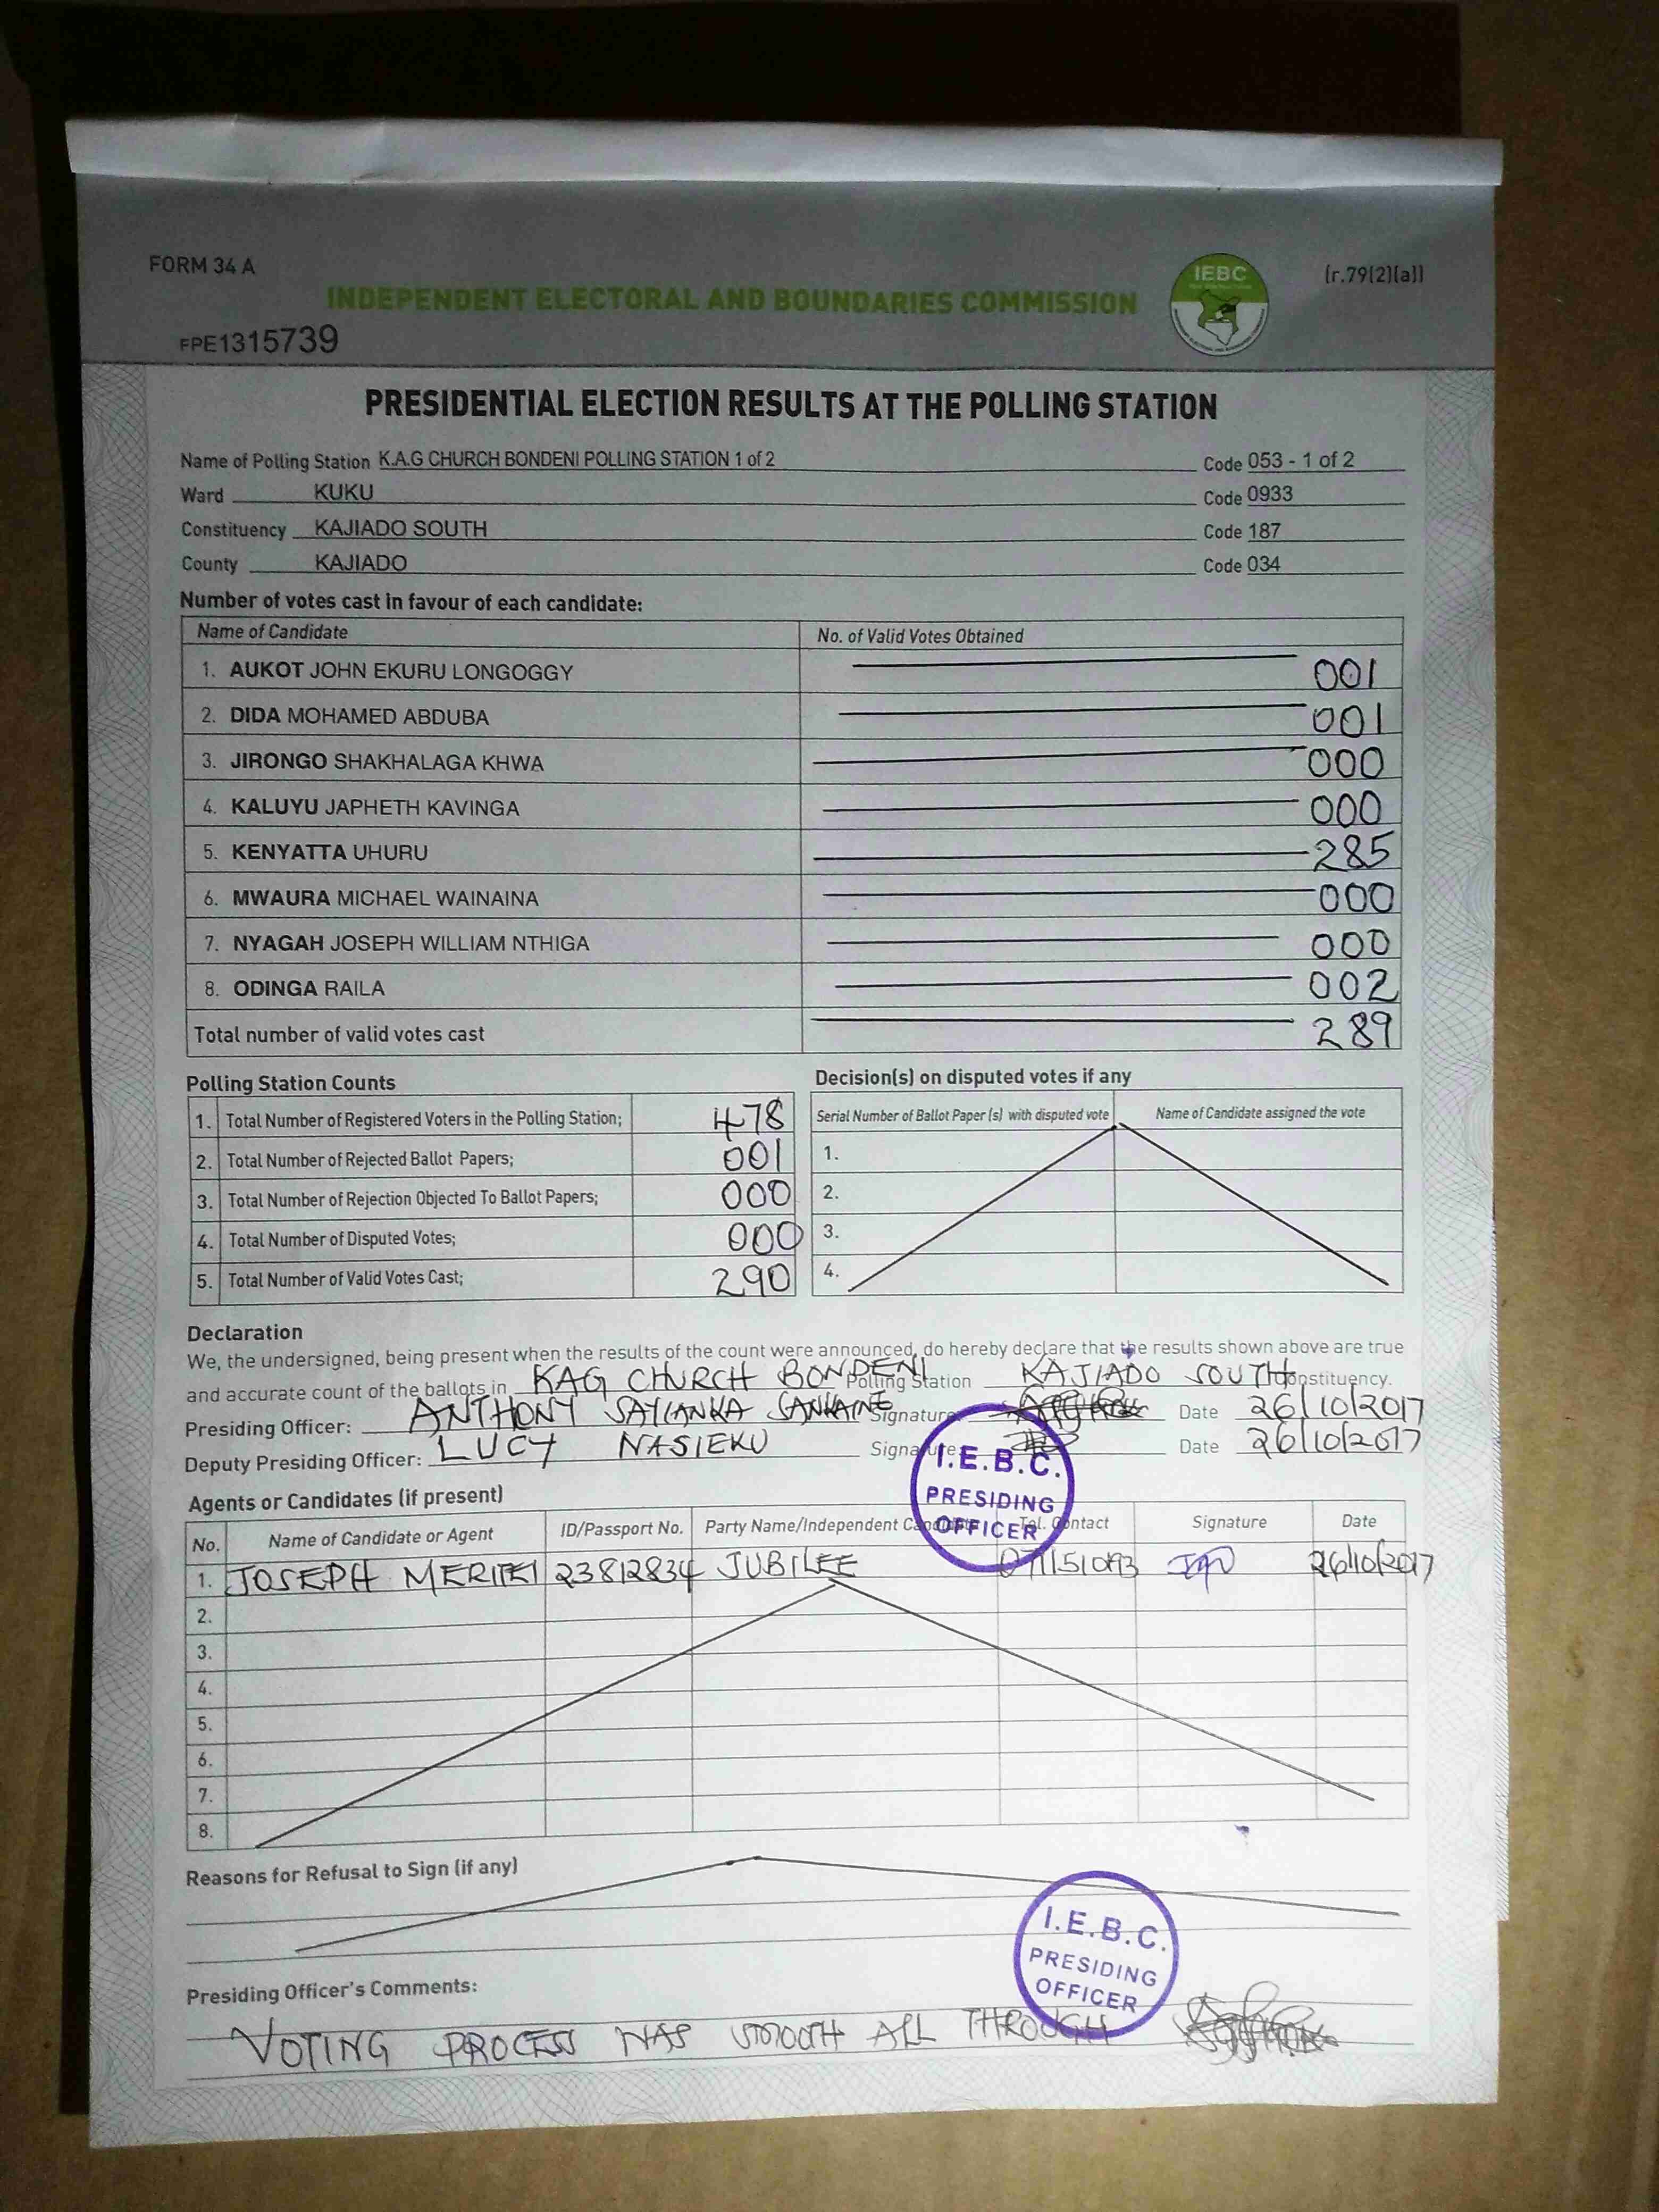 FORM 34 A
(r.79(2)(a))
INDEPENDENT ELECTORAL AND BOUNDARIES COMMISSION
IEBC
FPE1315739
PRESIDENTIAL ELECTION RESULTS AT THE POLLING STATION
Name of Polling Station K.A.G CHURCH BONDENI POLLING STATION 1 of 2 Code 053 - 1 of 2
Ward KUKU Code 0933
Constituency KAJIADO SOUTH Code 187
County KAJIADO Code 034
Number of votes cast in favour of each candidate:
Name of Candidate No. of Valid Votes Obtained
1. AUKOT JOHN EKURU LONGOGGY 001
2. DIDA MOHAMED ABDUBA 001
3. JIRONGO SHAKHALAGA KHWA 000
4. KALUYU JAPHETH KAVINGA 000
5. KENYATTA UHURU 285
6. MWAURA MICHAEL WAINAINA 000
7. NYAGAH JOSEPH WILLIAM NTHIGA 000
8. ODINGA RAILA 002
Total number of valid votes cast 289
Polling Station Counts
1. Total Number of Registered Voters in the Polling Station; 478
2. Total Number of Rejected Ballot Papers; 001
3. Total Number of Rejection Objected To Ballot Papers; 000
4. Total Number of Disputed Votes; 000
5. Total Number of Valid Votes Cast; 290
Decision(s) on disputed votes if any
Serial Number of Ballot Paper (s) with disputed vote Name of Candidate assigned the vote
1.
2.
3.
4.
Declaration
We, the undersigned, being present when the results of the count were announced, do hereby declare that the results shown above are true
and accurate count of the ballots in KAG CHURCH BONDENI Polling Station KAJIADO SOUTH Constituency.
Presiding Officer: ANTHONY SAYIANKA SANKAINE Signature Date 26/10/2017
Deputy Presiding Officer: LUCY NASIEKU Signature Date 26/10/2017
I.E.B.C.
PRESIDING
OFFICER
Agents or Candidates (if present)
No. Name of Candidate or Agent ID/Passport No. Party Name/Independent Candidate Tel. Contact Signature Date
1. JOSEPH 23812834 JUBILEE 26/10/2017
2.
3.
4.
5.
6.
7.
8.
Reasons for Refusal to Sign (if any)
I.E.B.C.
PRESIDING
OFFICER
Presiding Officer's Comments:
VOTING PROCESS WAS SMOOTH ALL THROUGH